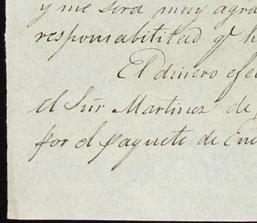 y me será muy agra
responsabilitad qe h
El dinero efe
el Sñr Martinez de
for el paquete de En